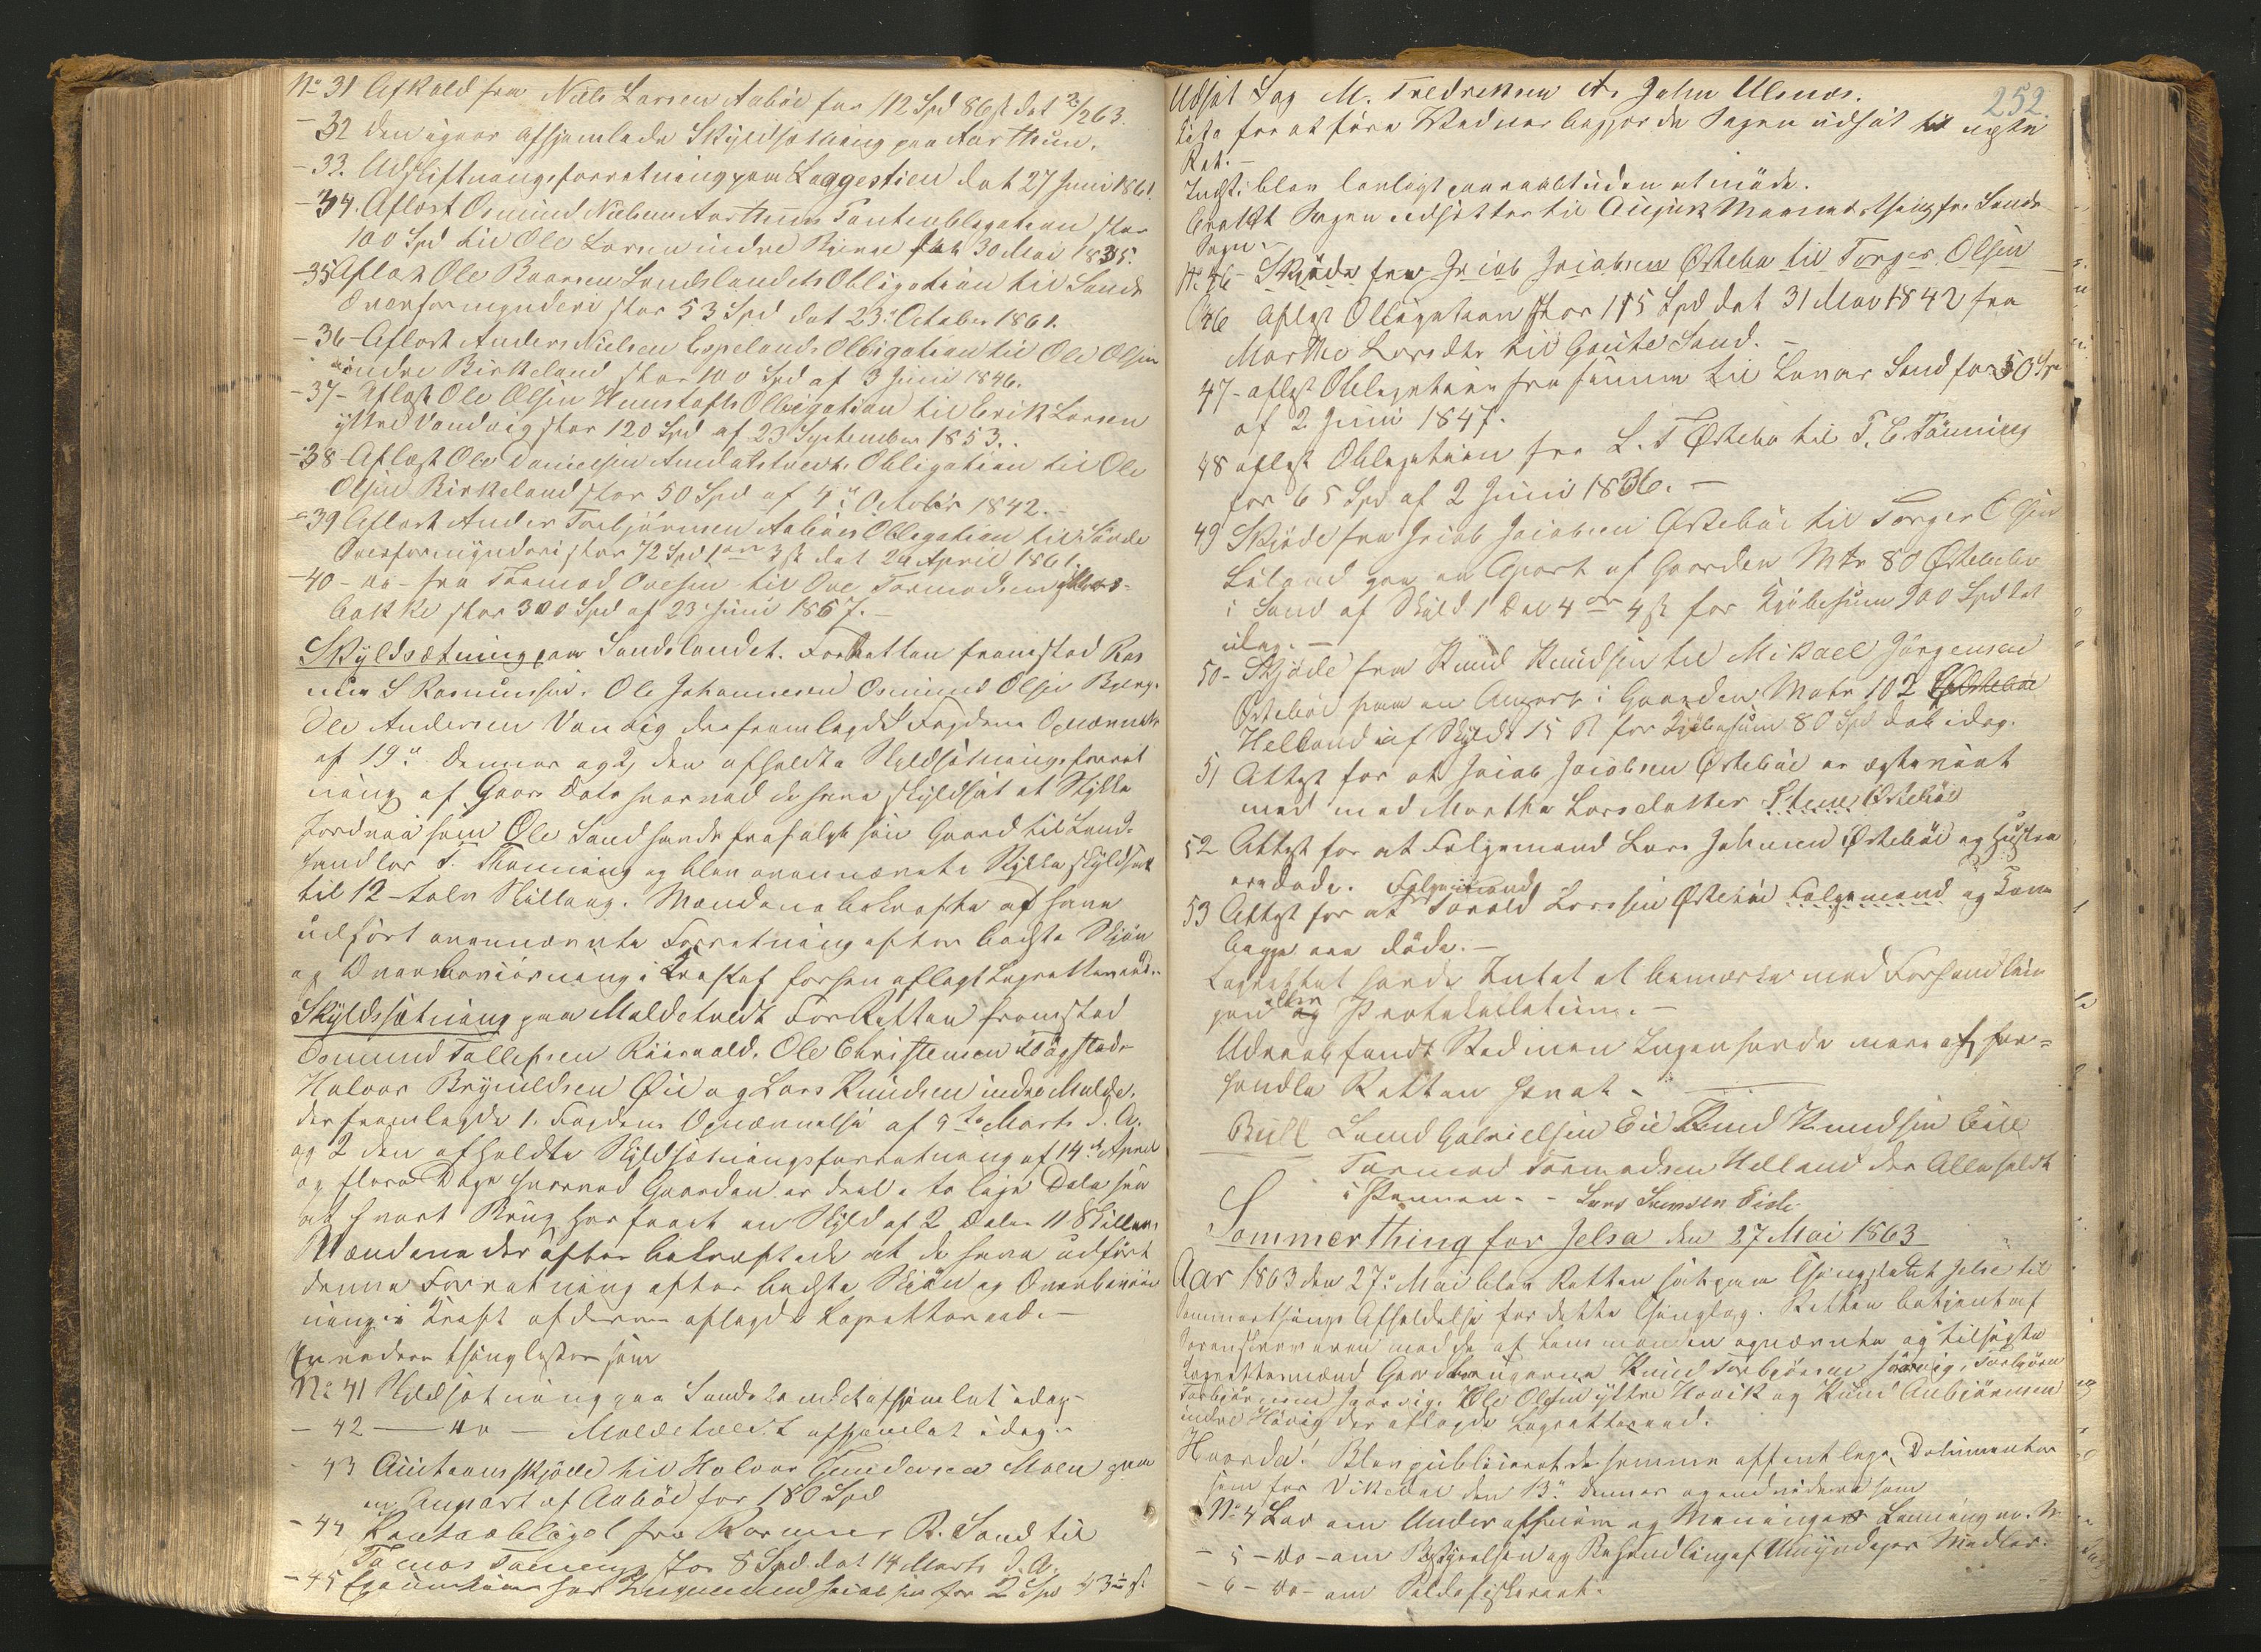 No 31 Afkald fra Niels Larsen Aabøe for 112 Spd 86 sk dat 2/2 63.
- 32 den igaar afhjemlede Skyldsætning paa Aarthun.
- 33. Udskiftningsforretning paa Laggestien dat 27 Juni 1861.
- 34. Aflæst Osmund Nielsen Aarthuns Panteobligation stor
100 Spd til Ole Larsen indre dat 30 Mai 1835.
- 35 Aflæst Ole Baarsen Sandslandets Obligation til Sands
Overformynderi stor 53 Spd dat 23. October 1861.
- 36 - Aflæst Anders Nielsen Espelands Obligation til Ole Olsen
indre Birkeland stor 100 Spd af 3 Juni 1846.
- 37 - Aflæst Ole Olsen Obligation til Erik Larsen
ytre Vandvig stor 120 Spd af 23 September 1853.
- 38 Aflæst Ole Danielsen Obligation til Ole
Olsen Birkeland stor 50 Spd af 4de October 1842.
- 39 Aflæst Anders Torbjørnsen Aabøes Obligation til Sande
Overformynderi stor 72 Spd 1 ort 3 sk dat 24 April 1861.
- 40 - do - fra Tormod Ovesen til Ove Tormodsen
bakke stor 300 Spd af 23 Juni 1857. -
Skyldsætning paa Sandslandet. For Retten fremstod Ras
mus S Rasmussen. Ole Johannesen Osmund Olsen
Ole Andersen Vandvig der fremlagde 1, Fogdens Opnævnelse
af 19de dennes og 2, den afholdte Skyldsætningsforret
ning af Gaars Dato hvorved de have skyldsat et Stykke
Jordvei som Ole Sand havde frasolgt sin Gaard til Land-
handler T. Thonning og blev ovennævnte Stykke skyldsat
til 12 - tolv Skilling. Mændene bekræfte at have
udført ovennævnte Forretning efter bedste Skjøn
og Overbeviisning i Kraft af forhen aflagt Lagretteseed.
Skyldsætning paa Maldetvedt For Retten fremstod
Osmund Tallefsen Riisvold. Ole Christensen
Halvor Brynildsen Øie og Lars Knudsen indre Malde.
der fremlagde 1. Fogdens Opnævnelse af 9de Marts d. A.
og 2 den afholdte Skyldsætningsforretning af 14de April
og flere Dage hvorved Gaarden er deelt i to lige Dele saa
at hvert Brug har faaet en Skyld af 2 Daler 11 Skilling.
Mændene der efter bekræftede at de have udført
denne Forretning efter bedste Skjøn og Overbeviis
ning i Kraft af deres aflagde Lagretteseed. -
Fremdeles thinglæstes som
No 41 Skyldsætning paa Sandslandet afhjemlet idag -
- 42 - do - Maldetvedt afhjemlet idag. -
- 43 Auctionsskjøde til Halvor Gundersen Moen paa
en Anpart af Aabøe for 180 Spd
- 44 Panteobligat fra Rasmus R. Sand til
Tomas Tonning stor 8 Spd dat 14 Marts d. A.
- 45 Execution hos for 2 Spd 43 sk

252.
Udsat Sag M. Fredriksen ctr John Ulenes.
for at føre Vidner begjærede Sagen udsat til næste
Ret. -
Indst: blev lovligt paaraabt uden at møde.
Eragtet Sagen udsættes til August Maaneds thing for Sands
Sogn.
No 46 - Skjøde fra Jacob Jacobsen Østebø til Torger Olsen
46 aflæst Obligation stor 115 Spd dat 31 Mai 1842 fra
Marthe Larsdtr til Gaute Sand. -
47 - aflæst Obligation fra samme til Lovar Sand for 50 Spd
af 2 Juni 1847.
48 aflæst Obligation fra L. T Østebø til T. C. Tønning
for 65 Spd af 2 Juni 1836. -
49 Skjøde fra Jacob Jacobsen Østebøe til Torger Olsen
Leland paa en Apart af Gaarden Mtr 80 Østebøe
i Sand af Skyld 1 Dal 4 ort 4 sk for Kjøbesum 900 Spd dat
idag. -
50 - Skjøde fra Knud Knudsen til Mikael Jørgensen
Østebøe paa en Anpart i Gaarden Matr 102 Østebøe
Helland af Skyld 15 sk for Kjøbesum 80 Spd dat idag.
51 Attest for at Jacob Jacobsen Østebøe er ægteviet
med med Marthe Larsdatter Østebøe
52 Attest for at Følgemand Lars Johnsen Østebøe og Hustru
ere døde. Følgemand
53 Attest for at Torald Larssen Østebøe Følgemand og Kone
begge ere døde. -
Lagrettet havde Intet at bemærke mod Forhandlin
gen eller og Protokollation. -
Udraab fandt Sted men Ingen havde mere at for-
handle Retten hævet. -
Bull Lund Gabrielsen Eie Knud Knudsen Eide
Tormod Tormodsen Helland der Alle holdt
i Pennen. - Lars Larsen Eide
Sommerthing for Jelsa den 27 Mai 1863
Aar 1863 den 27de Mai blev Retten sat paa Thingstedet Jelse til
Sommerthings Afholdelse for dette Thinglag. Retten betjent af
Sorenskriveren med de af Lensmanden opnævnte og tilsagte
Lagrettesmænd Gaardbrugerne Knud Torbjørnsen Torbjørn
Torbjørnsen Ole Olsen yttre Hovik og Knud Aabjørnsen
indre Høvig der aflagde Lagretteseed.
Hvorda! Blev publiceret de samme offentlige Dokumenter
som for Vikedal den 13de dennes og endvidere som
No 4 Lov om Underofficerers og Meniges Lønning m. M
- 5 - do - om Bestyrelsen og Behandling af Umyndiges Midler.
- 6 - do - om Sildefiskeriet.